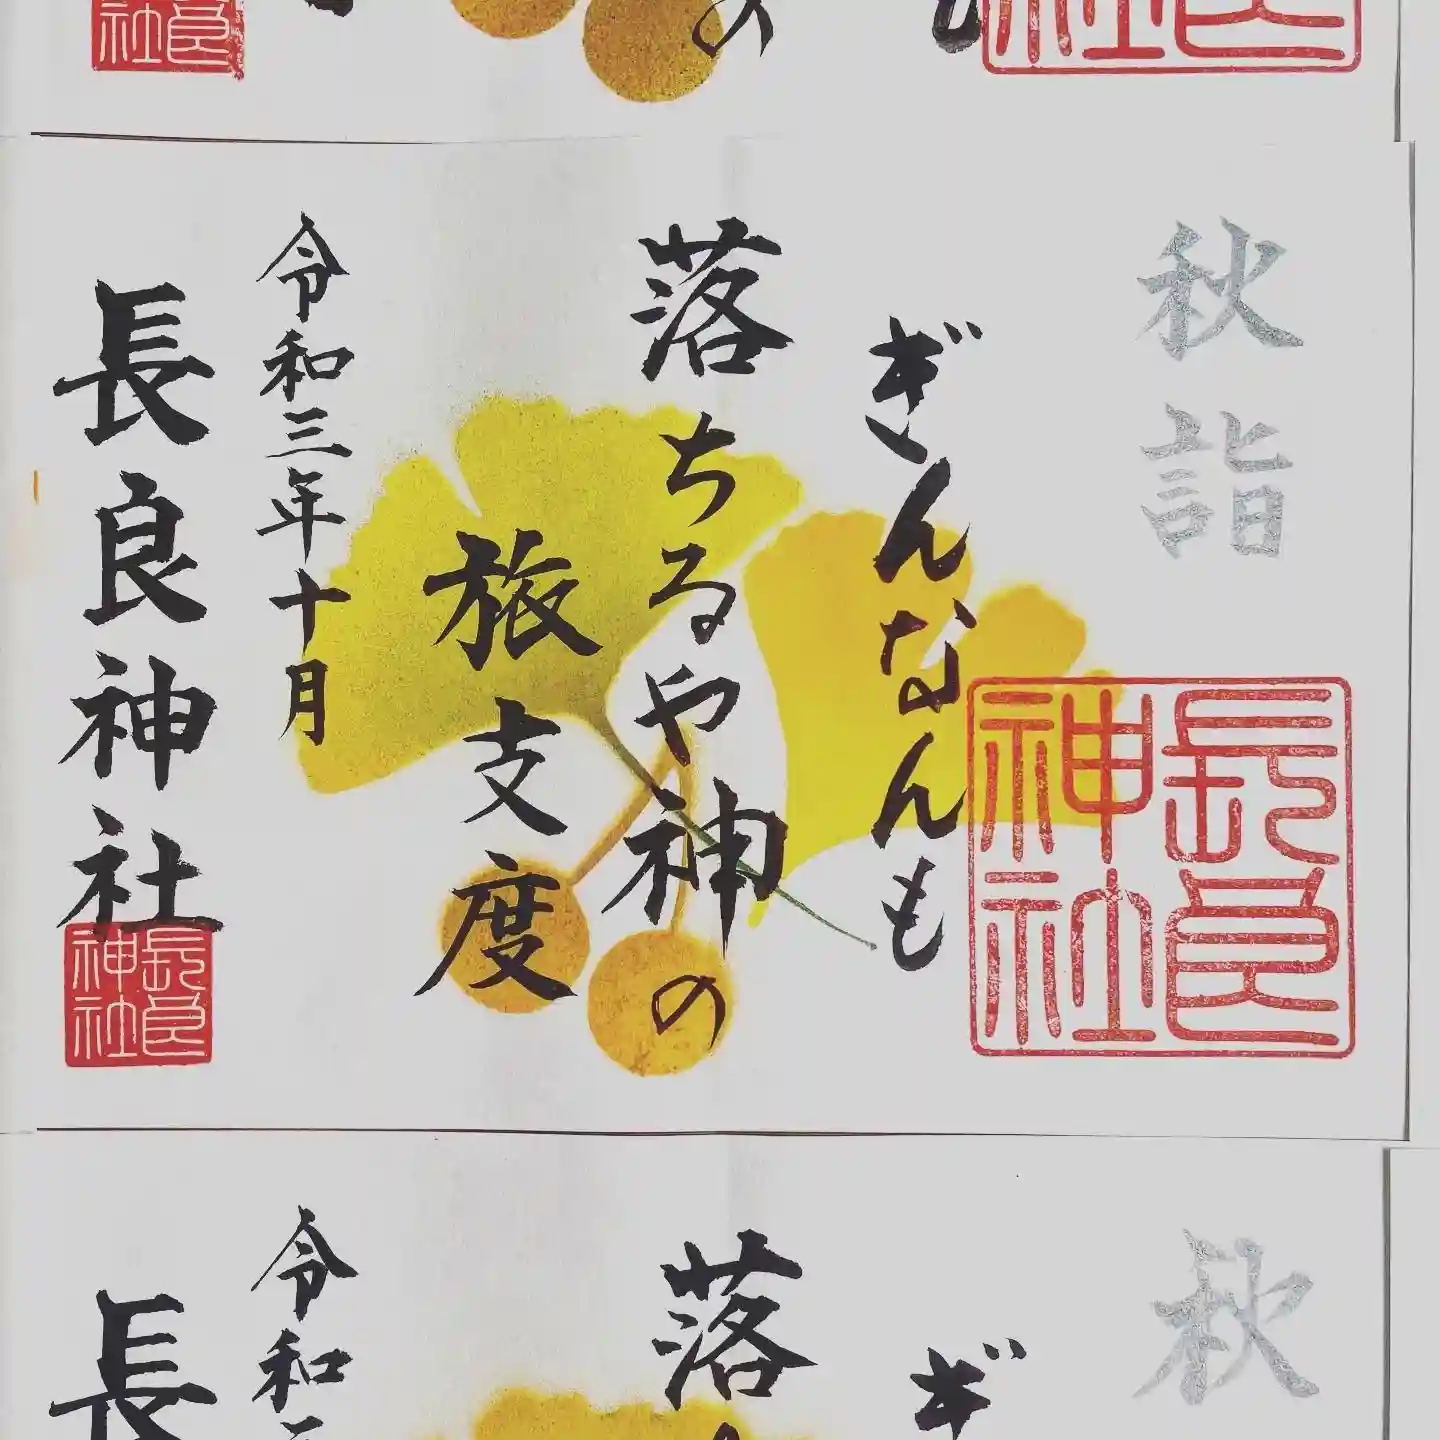 社良
の
秋詣
ぎんなんも
落ちるや神の
旅支度
令和三年十月
長良神社
長良
神社
長良
神社
秋
ぎ
落
令和
長